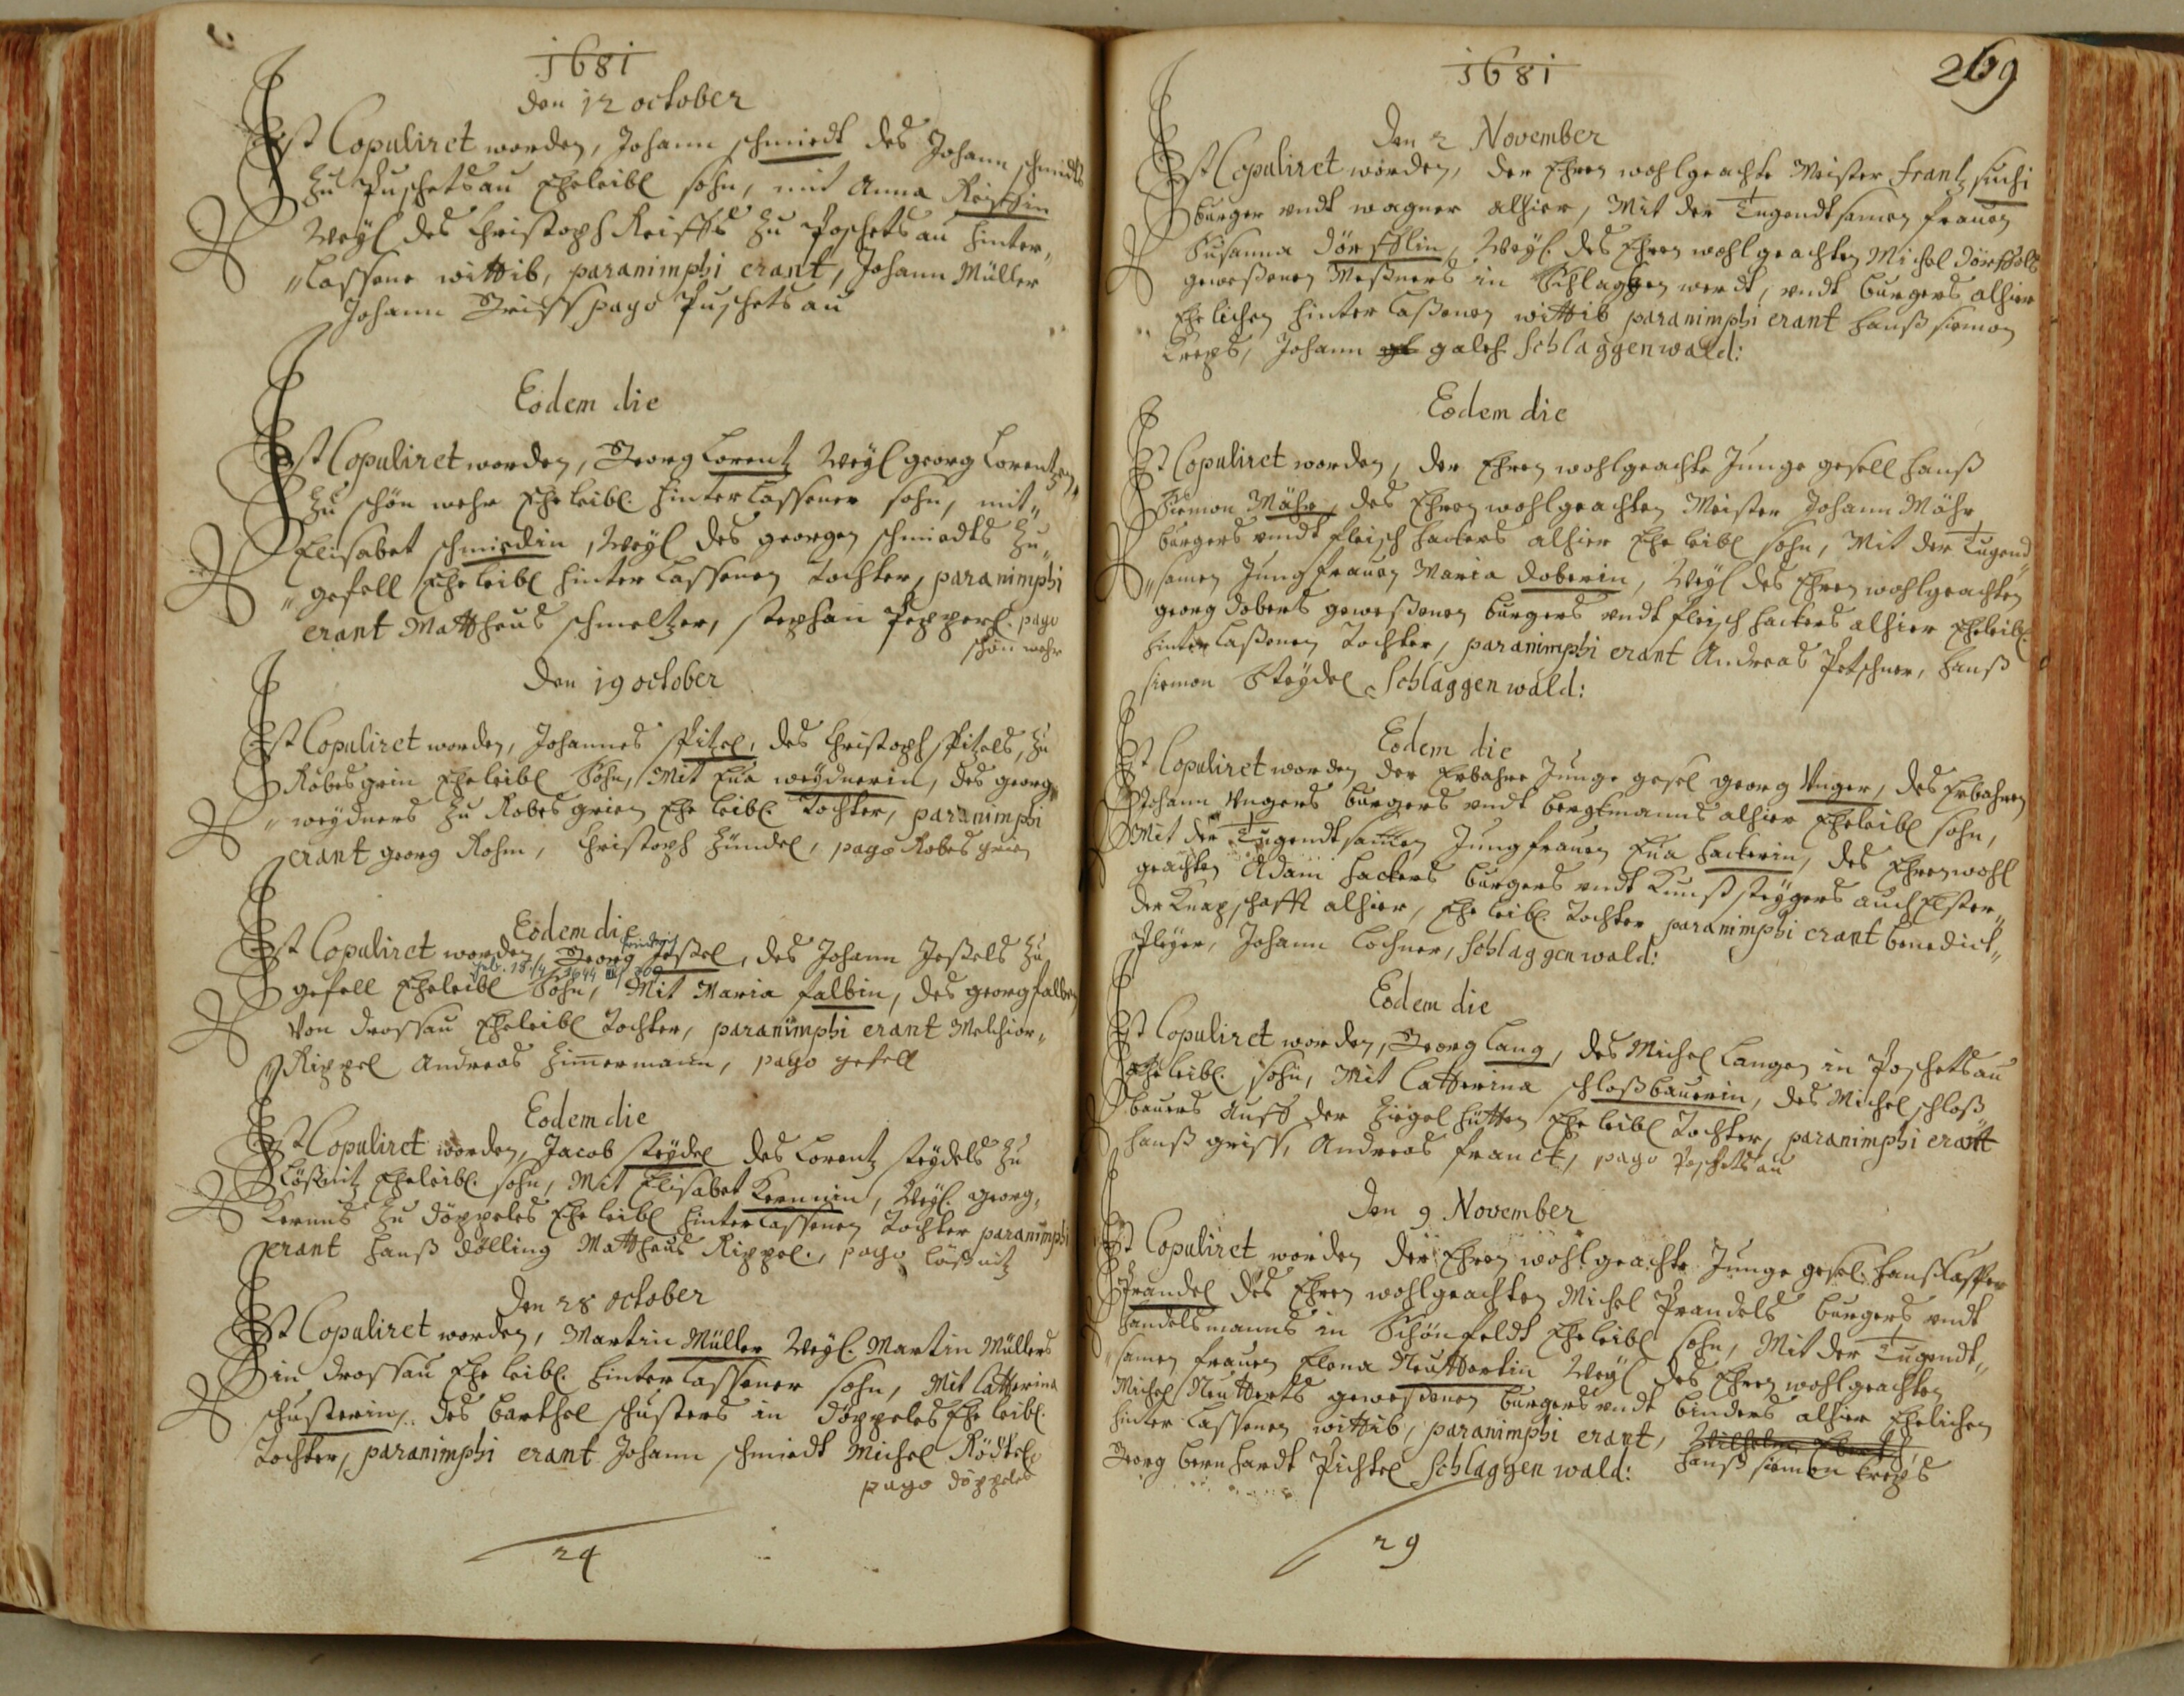 1681
den 12 october
Ist Copuliret worden, Johann schmiedt des Johann schmidts
zu Puschetsau Eheleibl sohn, mit Anna Reissin
Weyl des Christoph Reissls zu Poschetsau hinter„
„Lassene wittib, paranimphi erant, Johann Müller
Johann Griss pago Puschetsau
Eodem die
Ist Copuliret worden, Georg Lorentz Weyl georg Lorentzen„
zu schön wehr Eheleibl. hinterlassener sohn, mit„
Elisabet schmiedin, Weyl des georgen schmiedts zu„
„gfell Eheleibl hinter Lassenen Tochter, paranimphi
erant Mattheus schmeltzer, stephan Pepperl. pago
schön wehr
Den 19 october
Ist Copuliret worden, Johannes spitzel, des Christoph spitzels, zu
Robesgrin Eheleibl Sohn, Mit Eua weydnerin, des georg„
„weydners zu Robesgrien Ehe leibl. Tochter, paranimphi
erant georg Rohm, Christoph Zündel, pago Robesgrien
Eodem die
Ist Copuliret worden, Georg Jessel, des Johann Jessels zu
gefell Eheleibl Sohn, Mit Maria falbin, des georg falben
Von drossau Eheleibl Tochter, paranimphi erant Melchior„
Rippel Andreas Zimermann, pago gefell
Eodem die
Ist Copuliret worden, Jacob steydel des Lorentz steydels zu
Lößnitz Eheleibl. sohn, Mit Elisabet Kernnin, Weyl. georg„
Kernns zu döppeles Ehe leibl hinterlassenen Tochter paranimphi
erant Hanß dölling Mattheus Rippel, pago Lößnitz
Den 28 october
Ist Copuliret worden, Martin Müller Weyl. Martin Müllers
in drossau Ehe leibl. hinter lassener sohn, Mit Catterina
schusterin, des Barthel schusters in döppeles Ehe leibl.
Tochter, paranimphi erant Johann schmiedt Michel Rödtel,
pago döppeles
24
1681
269
Den 2 November
Ist Copuliret worden, der Ehren wohlgeachte Meister frantz suchi
burger undt wagner alhier, Mit der Tugendtsamen frauen
Susanna Dörfflin, Weyl. des Ehren wohlgeachten Michel dörffels
geweßenen Meßners in Schlaggen werdt, undt burgers alhier
Ehelichen hinter laßenen wittib paranimphi erant Hanß siemon
Kreps, Johann galch Schlaggenwald:
Eodem die
Ist Copuliret worden, der Ehren wohlgeachte Junge gesell Hanß
Siemon Mähr, des Ehren wohlgeachten Meister Johann Mähr
burgers undt fleisch hackers alhier Ehe leibl sohn, Mit der Tugend„
„samen Jungfrauen Maria doberin, Weyl des Ehren wohlgeachten
georg dobers geweßenen burgers undt fleisch hackers alhier Eheleibl.
hinterlaßenen Tochter, paranimphi erant Andreas Petschner, Hanß
siemon Steydel Schlaggenwald:
Eodem die
Ist Copuliret worden der Erbahre Junge gesel georg Unger, des Erbahren
Johann Ungers burgers undt bergkmanns alhier Eheleibl sohn,
Mit der Tugendtsamen Jungfrauen Eua hackerin, des Ehren wohl
geachten Adam hackers burgers undt Kunst steygers auch Elster„
der Knapschafft alhier, Ehe leibl. Tochter paranimphi erant benedict„
Pleyer, Johann Lochner, Schlaggenwald:
Eodem die
Ist Copuliret worden, Georg Lang, des Michel Langen in Poschetsau
Eheleibl. sohn, Mit Catterina schloßbauerin, des Michel schloß„
bauers Auff der Ziegel hütten Ehe leibl Tochter, paranimphi erant
Hanß griss, Andreas franck, pago Poschetsau
Den 9 November
Ist Copuliret worden der Ehren wohlgeachte Junge gesel. Hanß Casper
Prandel des Ehren wohlgeachten Michel Prandels burgers undt
handelsmanns in Schönfeldt Eheleibl sohn, Mit der Tugendt„
„samen frauen Elena Neutfertin Weyl des Ehren wohlgeachten
Michel Neutferts geweßenen burgers undt binders alhier Ehelichen
hinter lassenen wittib, paranimphi erant,
Georg bernhardt Pichtel Schlaggenwald: Hanß siemon Kreps
29